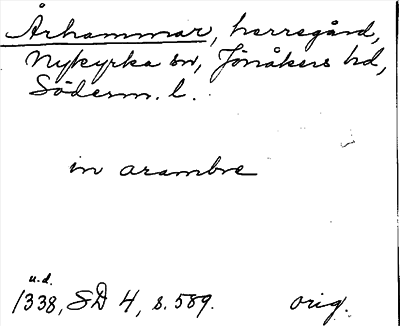 Århammar, herregård,
Nykyrka sn, Jönåkers hd,
Söderm. l.
in arambre
u.d.
1338, SD 4, s. 589. orig.